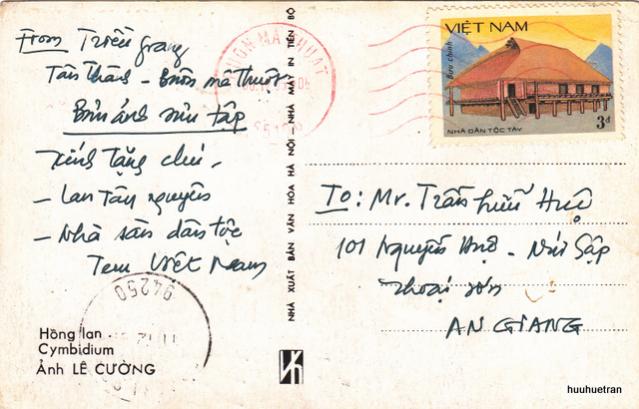 From Triều Giang
Tân Thành - Buôn mê thuột
Bưu ảnh sưu tập
Kính tặng chú,
- Lan Tây nguyên
- Nhà sàn dân tộc
Tem Việt Nam
94250
Hồng lan
Cymbidium
Ảnh LÊ CƯỜNG
NHÀ XUẤT BẢN VĂN HÓA HÀ NỘI - NHÀ MÁY IN TIẾN BỘ
BUÔN MA THUỘT
VIỆT NAM
Bưu chính
3đ
NHÀ DÂN TỘC TÀY
To: Mr. Trần Hữu Huệ
101 Nguyễn Huệ - Núi Sập
Thoại sơn
AN GIANG
huuhuetran